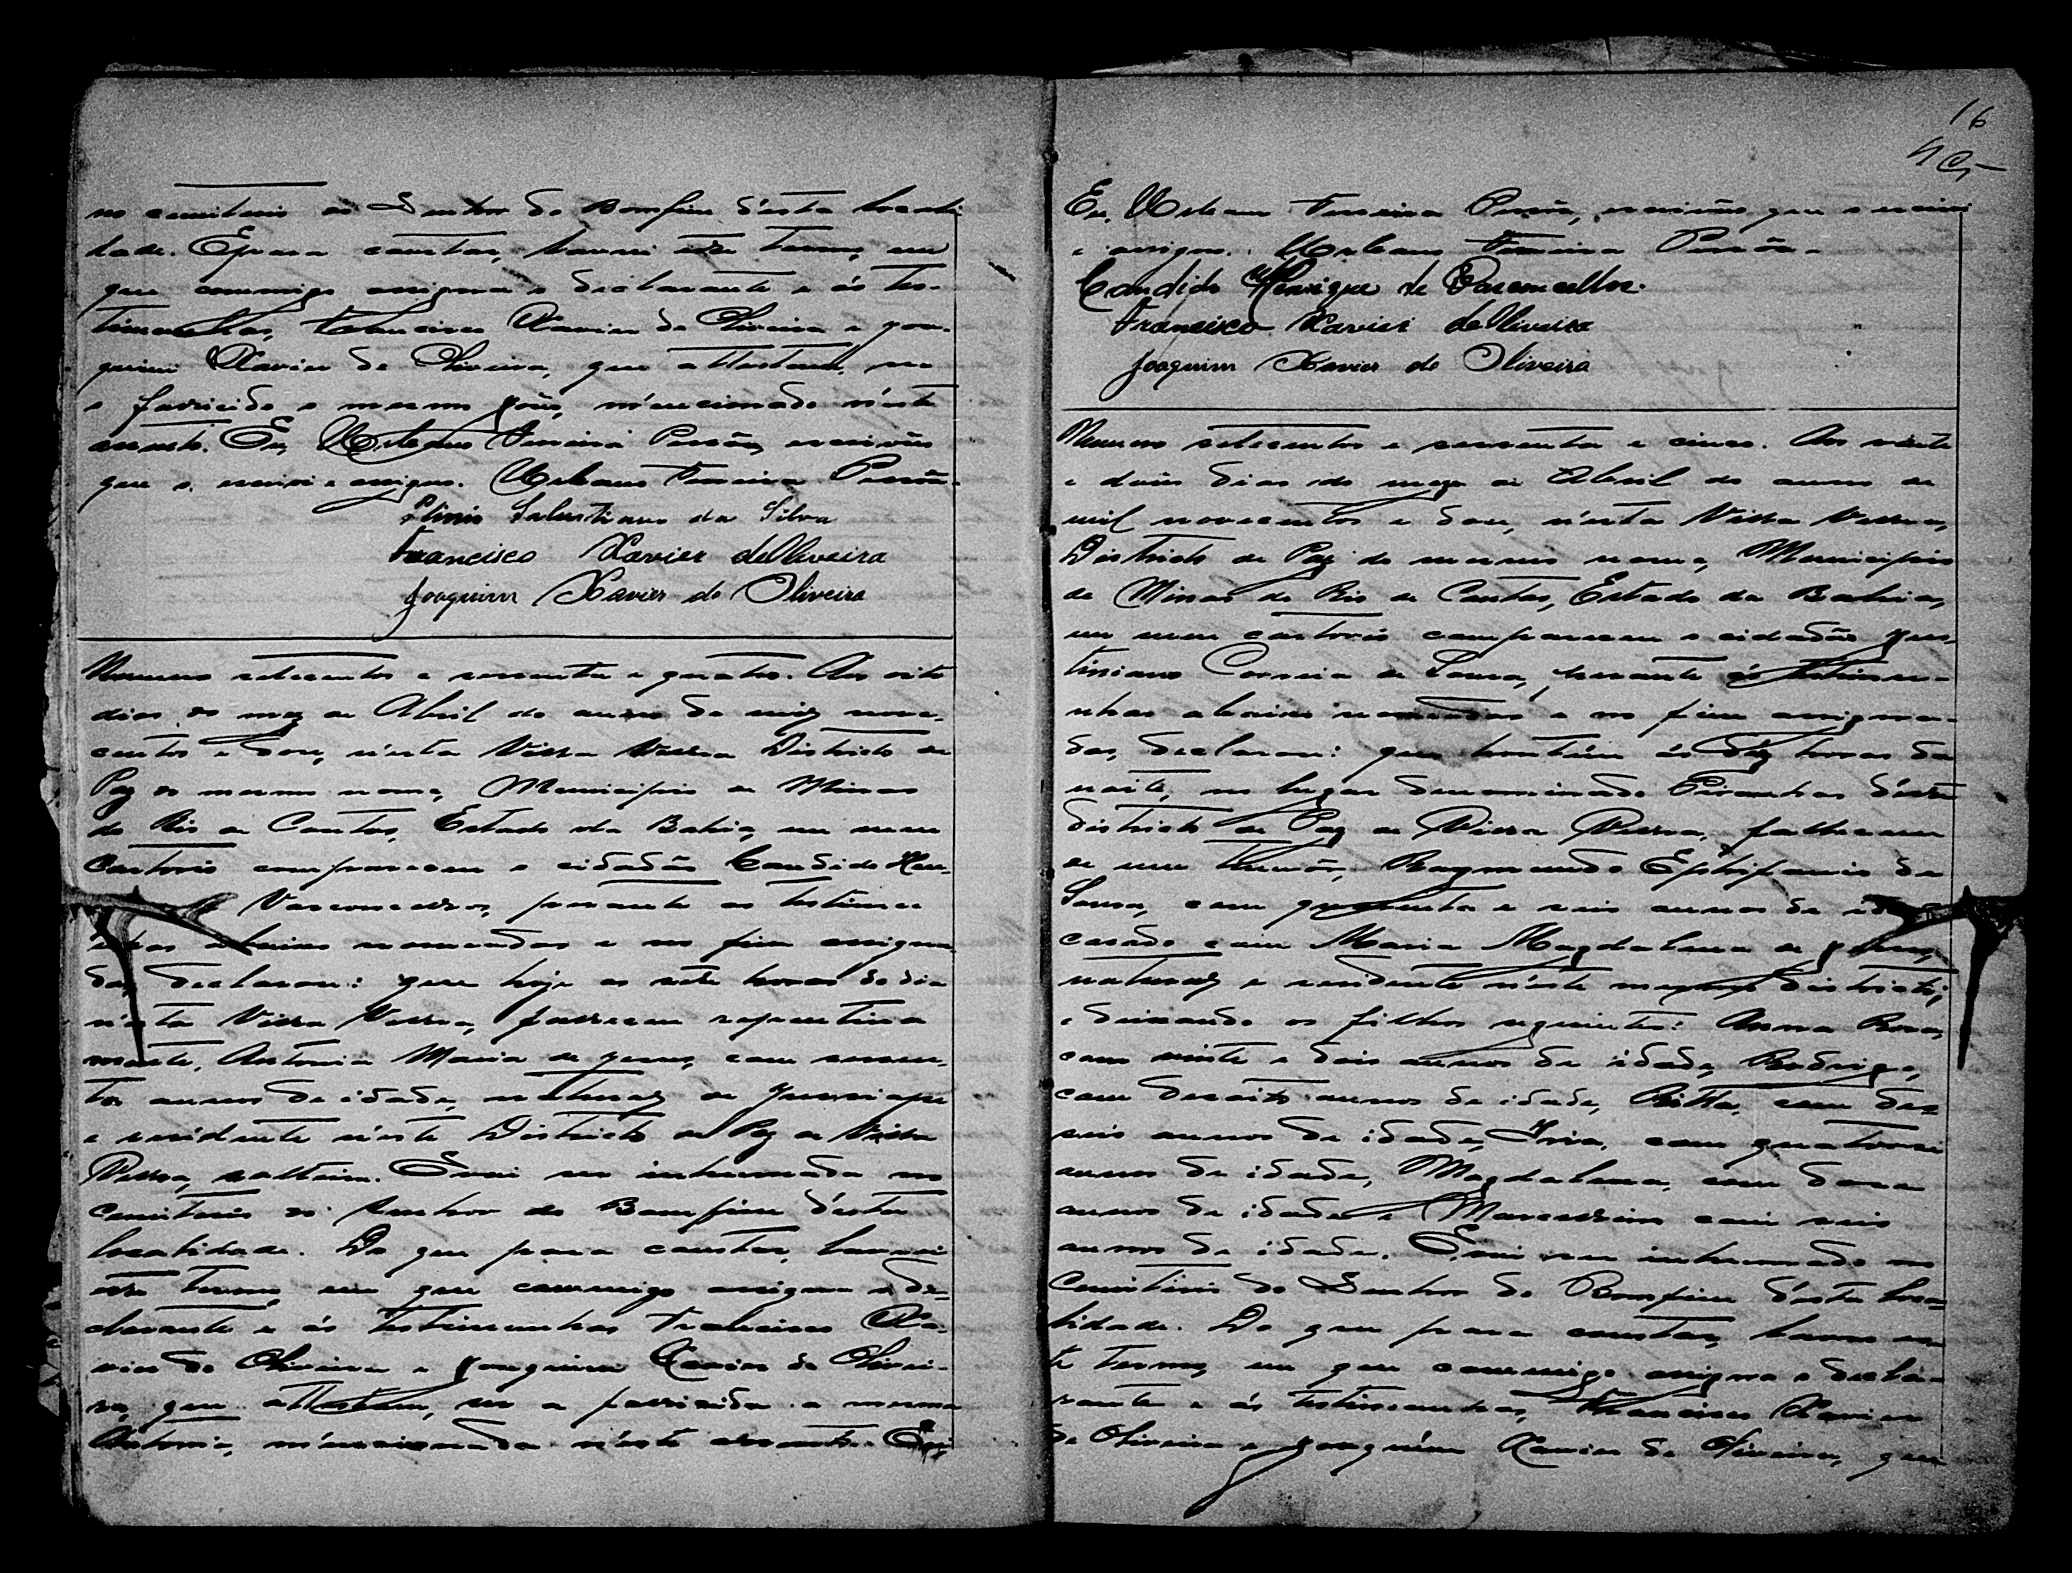 no cemiterio do Senhor do Bomfim d'esta locali
dade. E para constar, lavrei este termo, em
que commigo assigna o declarante e ás tes-
timunhas, Francisco Xavier de Oliveira e Joa-
quim Xavier de Oliveira, que attestam, ser
o fallicido o mesmo João, mencionado n'este
assento. Eu, Urbano Ferreira Pessôa, escrivão
que o escrivi e assigno. Urbano Ferreira Pessôa.
Plinio Salustiano da Silva
Francisco Xavier de Oliveira
Joaquim Xavier de Oliveira
Numero setecentos e sessenta e quatro. Aos oito
dias do mez de Abril do anno de mil nove-
centos e dou, n'esta Villa Velha Districto de
Paz do mesmo nome, Municipio de Minas
do Rio de Contas, Estado da Bahia, em meu
Cartorio compareceu o cidadão Candido Hen-
Vasconcellos, perante as testimu
nhas abaixo nomeadas e no fim assigna
das, declarou: que hoje as sete horas do dia
n'esta Villa Velha, falleceu repentina
mente, Antonia Maria de Jesus, com sessen-
ta annos de idade, natural de
e residente n'este Districto de Paz de Villa
Velha, solteira. E vai ser inhumada no
Cemiterio do Senhor do Bomfim d'esta
localidade. Do que para constar, lavrei
este termo, em que commigo assigna o de-
clarante e ás testimunhas Francisco Xa-
vier de Oliveira e Joaquim Xavier de Olivei-
ra, que attestam, ser a fallicida a mesma
Antonia, mencionada n'este assento. Eu,
16
Eu, Urbano Ferreira Pessôa, escrivão que o escrivi
e assigno. Urbano Ferreira Pessôa.
Candido Henrique de Vasconcellos.
Francisco Xavier de Oliveira
Joaquim Xavier de Oliveira
Numero setecentos e sessenta e cinco. Aos vinte
e dois dias do mez de Abril do anno de
mil novecentos e dou, n'esta Villa Velha,
Districto de Paz do mesmo nome, Municipio
de Minas do Rio de Contas, Estado da Bahia,
em meu cartorio compareceu o cidadão Jus-
tiniano Correia de Souza, perante ás testimu-
nhas abaixo nomeadas e no fim assigna-
das, declarou: que hontem ás dez horas da
noite, no lugar denominado Piranhas d'este
districto de Paz de Villa Velha, falleceu
de um tumôr, Raymundo Epiphanio de
Souza, com quarenta e seis annos de idade
casado com Maria Magdalena de Jesus,
natural e residente n'este mesmo districto,
deixando os filhos seguintes: Anna Rosa,
com vinte e dois annos de idade, Rodrigo,
com desoito annos de idade, Ritta, com des
seis annos de idade, Iria, com quatorse
annos de idade, Magdalena, com dose
annos de idade e Marcellino com seis
annos de idade. E vai ser inhumado no
Cemiterio do Senhor do Bomfim d'esta loca-
lidade. Do que para constar, lavrei es-
te termo, em que commigo assigna o decla-
rante e ás testimunhas, Francisco Xavier
de Oliveira e Joaquim Xavier de Oliveira, que